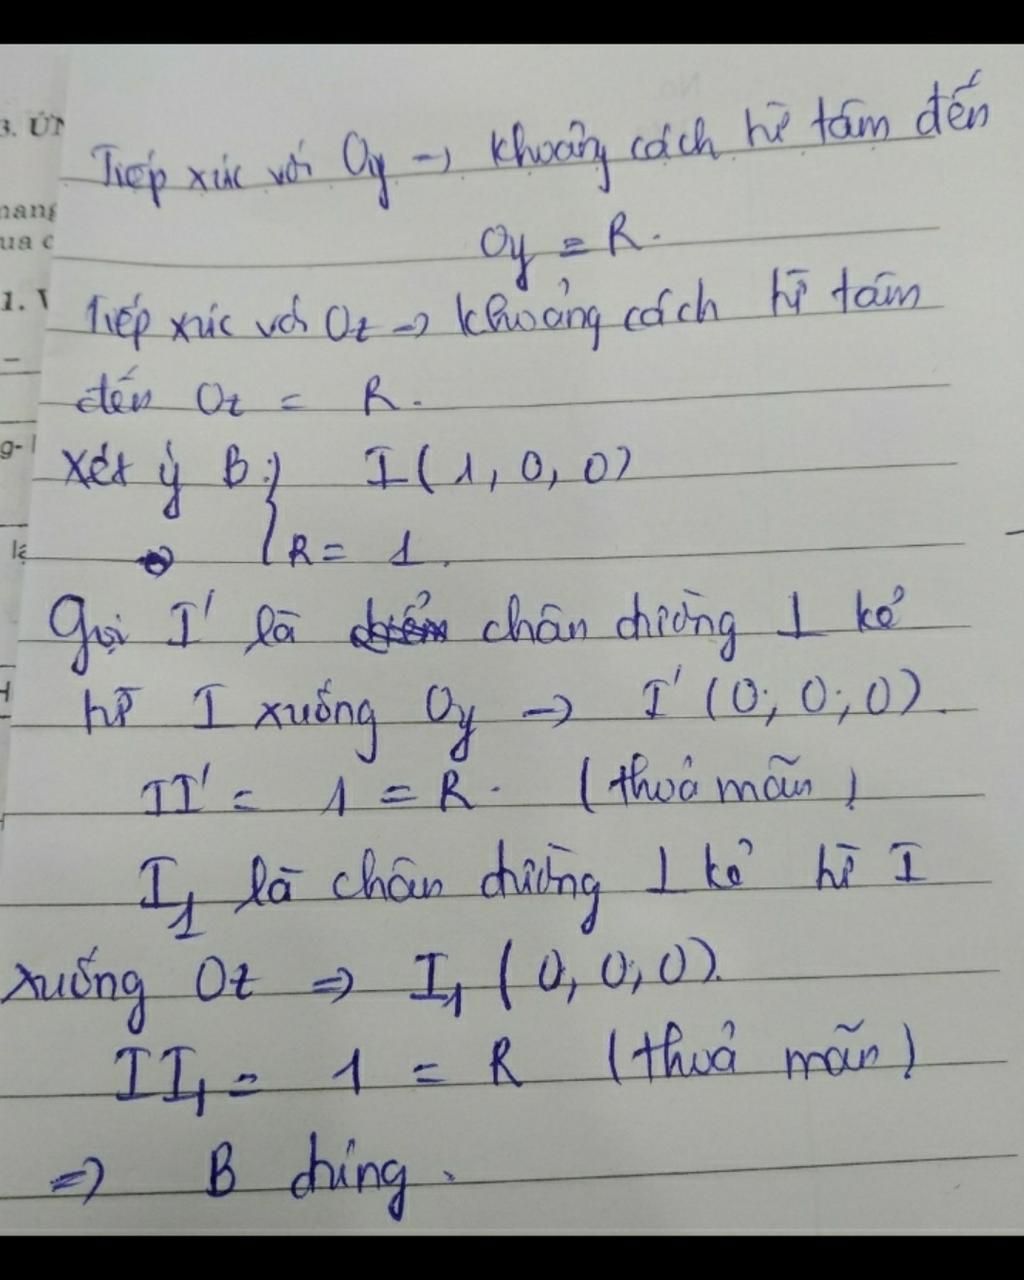 3. ỨN
nang
ua c
1. V
g-
lạ
Tiếp xúc với Oy → khoảng cách từ tâm đến
Oy = R.
Tiếp xúc với Oz → khoảng cách từ tâm
đến Oz = R.
Xét ý B: I(1, 0, 0)
R = 1.
Gọi I' là chân đường ⊥ kẻ
từ I xuống Oy → I' (0; 0; 0).
II' = 1 = R. (thoả mãn)
I₁ là chân đường ⊥ kẻ từ I
xuống Oz ⇒ I₁ (0, 0, 0).
II₁ = 1 = R (thoả mãn)
⇒ B đúng.